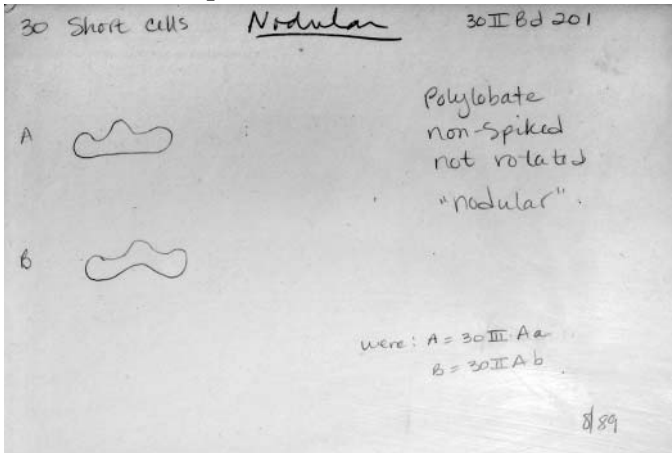 30 Short cells Nodular 30 II Bd 201
Polylobate
non-spiked
not rotated
"nodular".
A
B
were: A = 30 III Aa
B = 30 II Ab
8/89